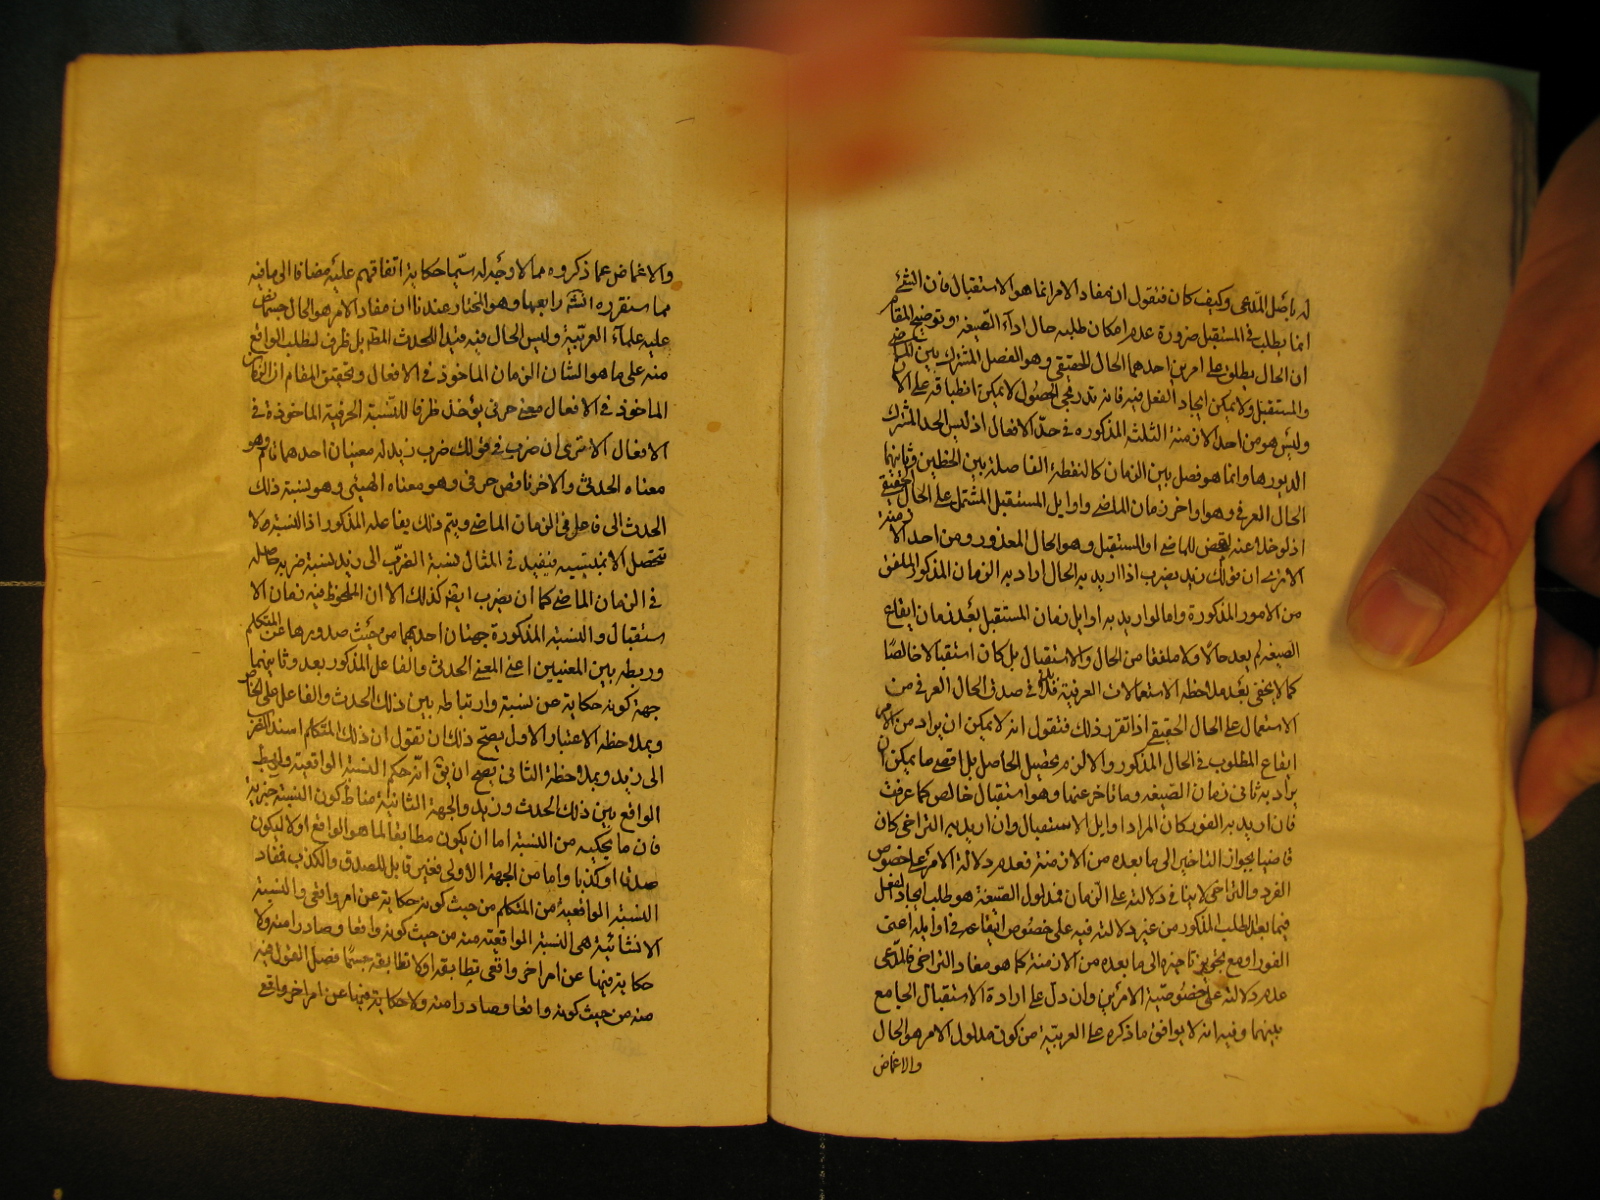 له باصل المدعى وكيف كان فنقول ان مفاد الامر انما هو الاستقبال فان الشئ
انما يطلب في المستقبل ضرورة عدم امكان طلبه حال اداء الصيغة وتوضيح المقام
ان الحال يطلق على امرين احدهما الحال الحقيقى وهو الفصل المشترك بين الماضى
والمستقبل ولا يمكن ايجاد الفعل فيه فانه تدريجى الحصول لا يمكن انطباقه على الان
وليس هو من احد الازمنة الثلثة المذكورة في حد الافعال اذ ليس الحد المشترك
وانما هو فصل بين الزمان كالنقطة الفاصلة بين الخطين وثانيهما
الحال العرفى وهو اواخر زمان الماضى واوايل المستقبل المشتمل على الحال الحقيقى
اذ لو خلا عنه لمحض للماضى او المستقبل وهو الحال المعدود من احد الازمنة
الا ترى ان قولك زيد يضرب اذا اريد به الحال اراد به الزمان المذكور الملفق
من الامور المذكورة واما لو اريد به اوايل زمان المستقبل بعد زمان ايقاع
الصيغة لم يعد حالا ولا ملفقا من الحال والاستقبال بل كان استقبالا خالصا
كما لا يخفى بعد ملاحظة الاستعمالات العرفية فلا بد في صدق الحال العرفى من
الاشتمال على الحال الحقيقى اذا تقرر ذلك فنقول انه لا يمكن ان يراد من الامر
ايقاع المطلوب في الحال المذكور والا لزم تحصيل الحاصل بل اقصى ما يمكن ان
يراد به ثانى زمان الصيغة وما تاخر عنها وهو استقبال خالص كما عرفت
فان اريد به الفور كان المراد اوايل الاستقبال وان اريد به التراخى كان
قاضيا بجواز التاخير الى ما بعده من الازمنة فعدم دلالة الامر على خصوص
الفور والتراخى لا ينافى دلالته على الزمان فمدلول الصيغة هو طلب ايجاد الفعل
فيما بعد الطلب المذكور من غير دلالة فيه على خصوص ايقاعه في اوايله اعنى
الفور او مع تجويز تاخيره الى ما بعده من الازمنة كما هو مفاد التراخى فالمدعى
عدم دلالته على خصوصية الامرين وان دل على ارادة الاستقبال الجامع
بينهما وفيه انه لا يوافق ما ذكره علماء العربية من كون مدلول الامر هو الحال
والاغماض
والاغماض عما ذكروه مما لا وجه له سيما حكاية اتفاقهم عليه مضافا الى ما فيه
مما سنقرره انش رابعها وهو المختار عندنا ان مفاد الامر هو الحال حسبما نص
عليه علماء العربية وليس الحال فيه قيدا للحدث المط بل ظرف لطلب الواقع
منه على ما هو الشان الزمان الماخوذ في الافعال وتحقيق المقام ان الزمان
الماخوذ في الافعال معنى حرفى يؤخذ ظرفا للنسبة الحرفية الماخوذة في
الافعال الا ترى ان ضرب في قولك ضرب زيد له معنيان احدهما تام وهو
معناه الحدثى والاخر ناقص حرفى وهو معناه الهيئى وهو نسبة ذلك
الحدث الى فاعل في الزمان الماضى ويتم ذلك بفاعله المذكور اذ النسبة لا
تتحصل الا بمنتسبيه فيفيد في المثال نسبة الضرب الى زيد نسبة ضرب حاصله
في الزمان الماضى كما ان يضرب ايضا كذلك الا ان الملحوظ فيه زمان الا
ستقبال والنسبة المذكورة جهتان احديهما من حيث صدورها عن المتكلم
وربطه بين المعنيين اعنى المعنى الحدثى والفاعل المذكور بعد وثانيهما
جهة كونه حكاية عن نسبة وارتباطه بين ذلك الحدث والفاعل على الخاص
وبملاحظة الاعتبار الاول يصح ذلك ان تقول ان ذلك المتكلم اسند الضرب
الى زيد وبملاحظة الثانى يصح ان يق انه حكم النسبة الواقعية والربط
الواقع بين ذلك الحدث وزيد والجهة الثانية مناط كون النسبة خبرية
فان ما يحكيه من النسبة اما ان يكون مطابقا لما هو الواقع اولا ليكون
صدقا او كذبا واما من الجهة الاولى فغير قابل للصدق والكذب فمفاد
النسبة الواقعية من المتكلم من حيث كونه حكاية عن امر واقعى والنسبة
الانشائية هى النسبة الواقعية منه من حيث كونه واقعا وصادرا منه ولا
حكاية فيها عن امر اخر واقعى يطابقه اولا تطابقه حسبما فصل القول فيه
منه من حيث كونه واقعا وصادرا منه ولا حكاية فيها عن امر اخر واقع